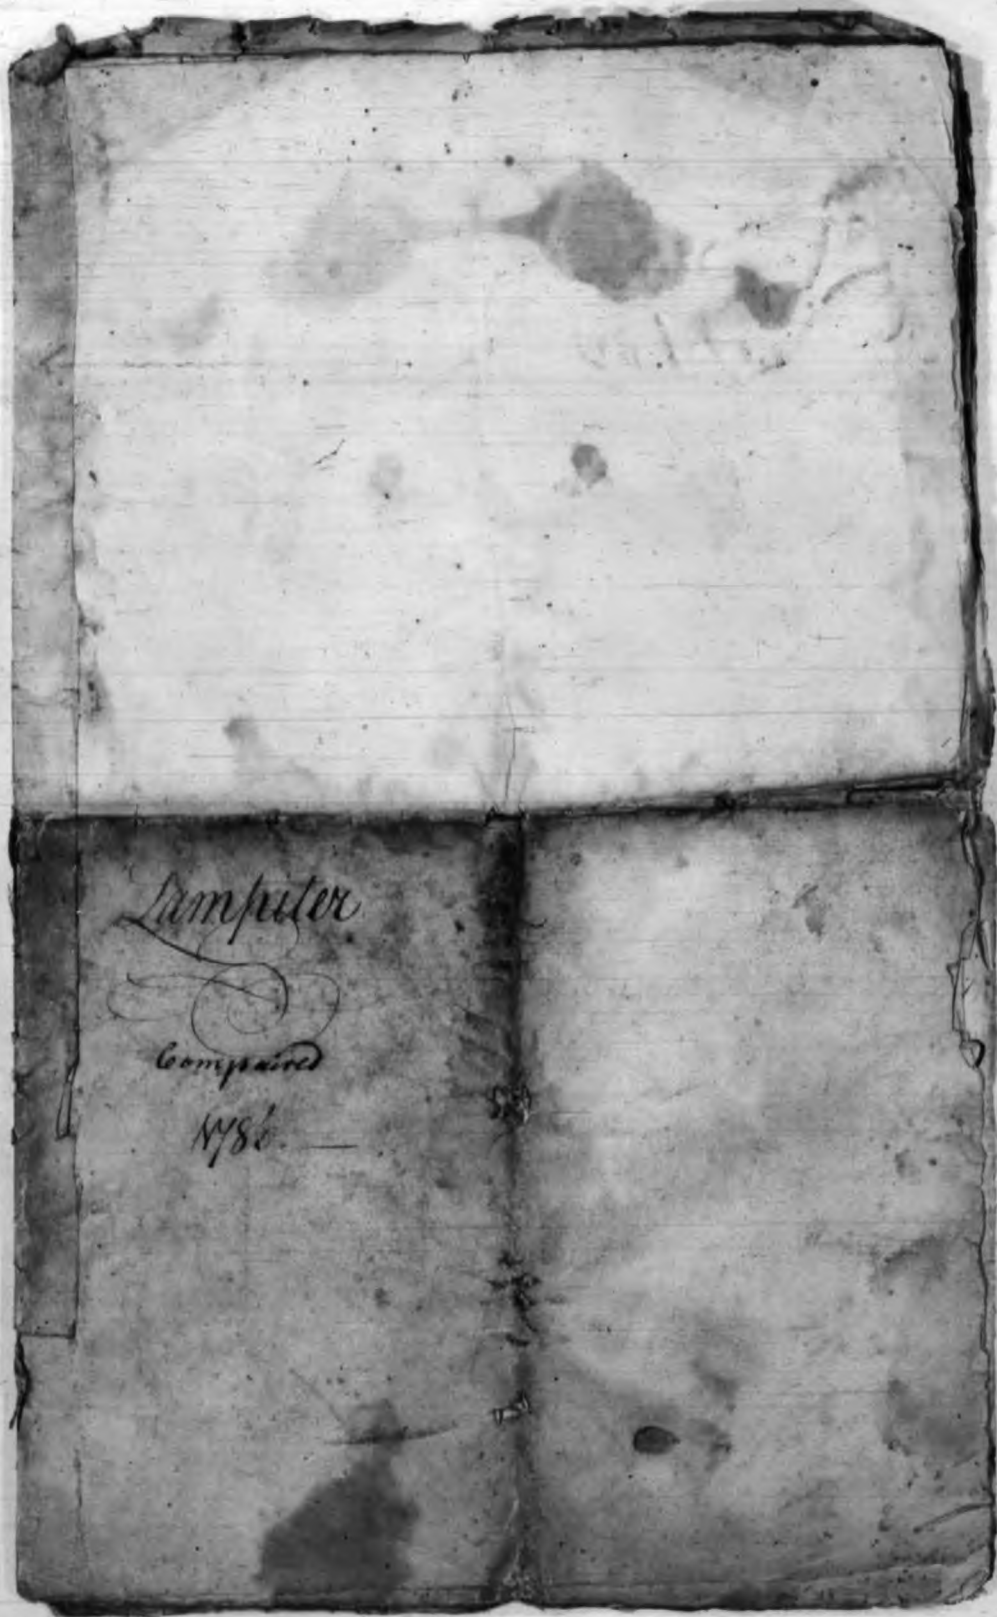 Lampiter
Compaired
1786.